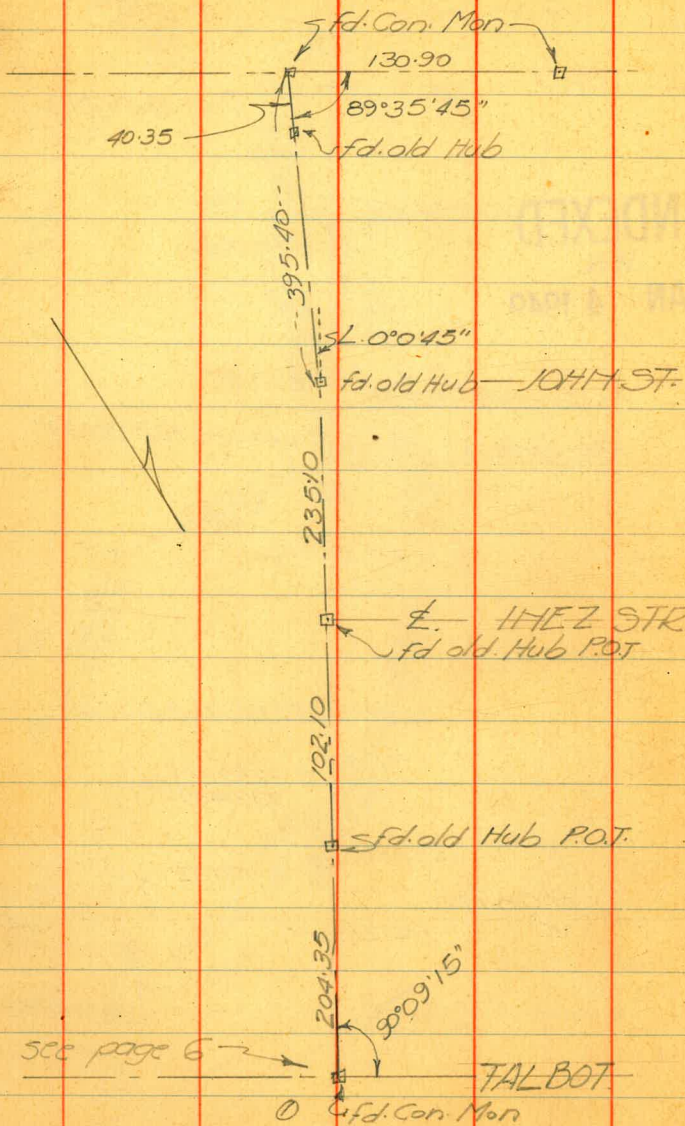 fd. Con. Mon
130.90
89°35'45"
40.35
fd. old Hub
395.40
L. 0°0'45"
fd. old Hub JOHN ST.
235.10
℄ INEZ STR
fd old. Hub P.O.T
102.10
fd. old Hub P.O.T.
204.35
90°09'15"
see page 6
TALBOT
① fd. Con. Mon